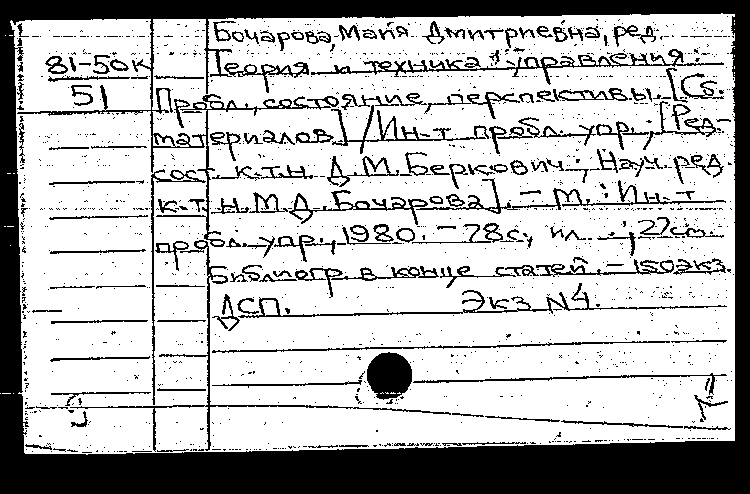 Бочарова, Майя Дмитриевна, ред.
81-50к Теория и техника управления:
51 Пробл., состояние, перспективы. [Сб.
материалов] / Ин-т пробл. упр.; [Ред.-
сост. к.т.н. Д.М. Беркович; Науч. ред.
к.т.н. М.Д. Бочарова]. - М.: Ин-т
пробл. упр., 1980. - 78 с., ил.; 27 см.
Библиогр. в конце статей. - 150 экз.
ДСП. Экз N4.